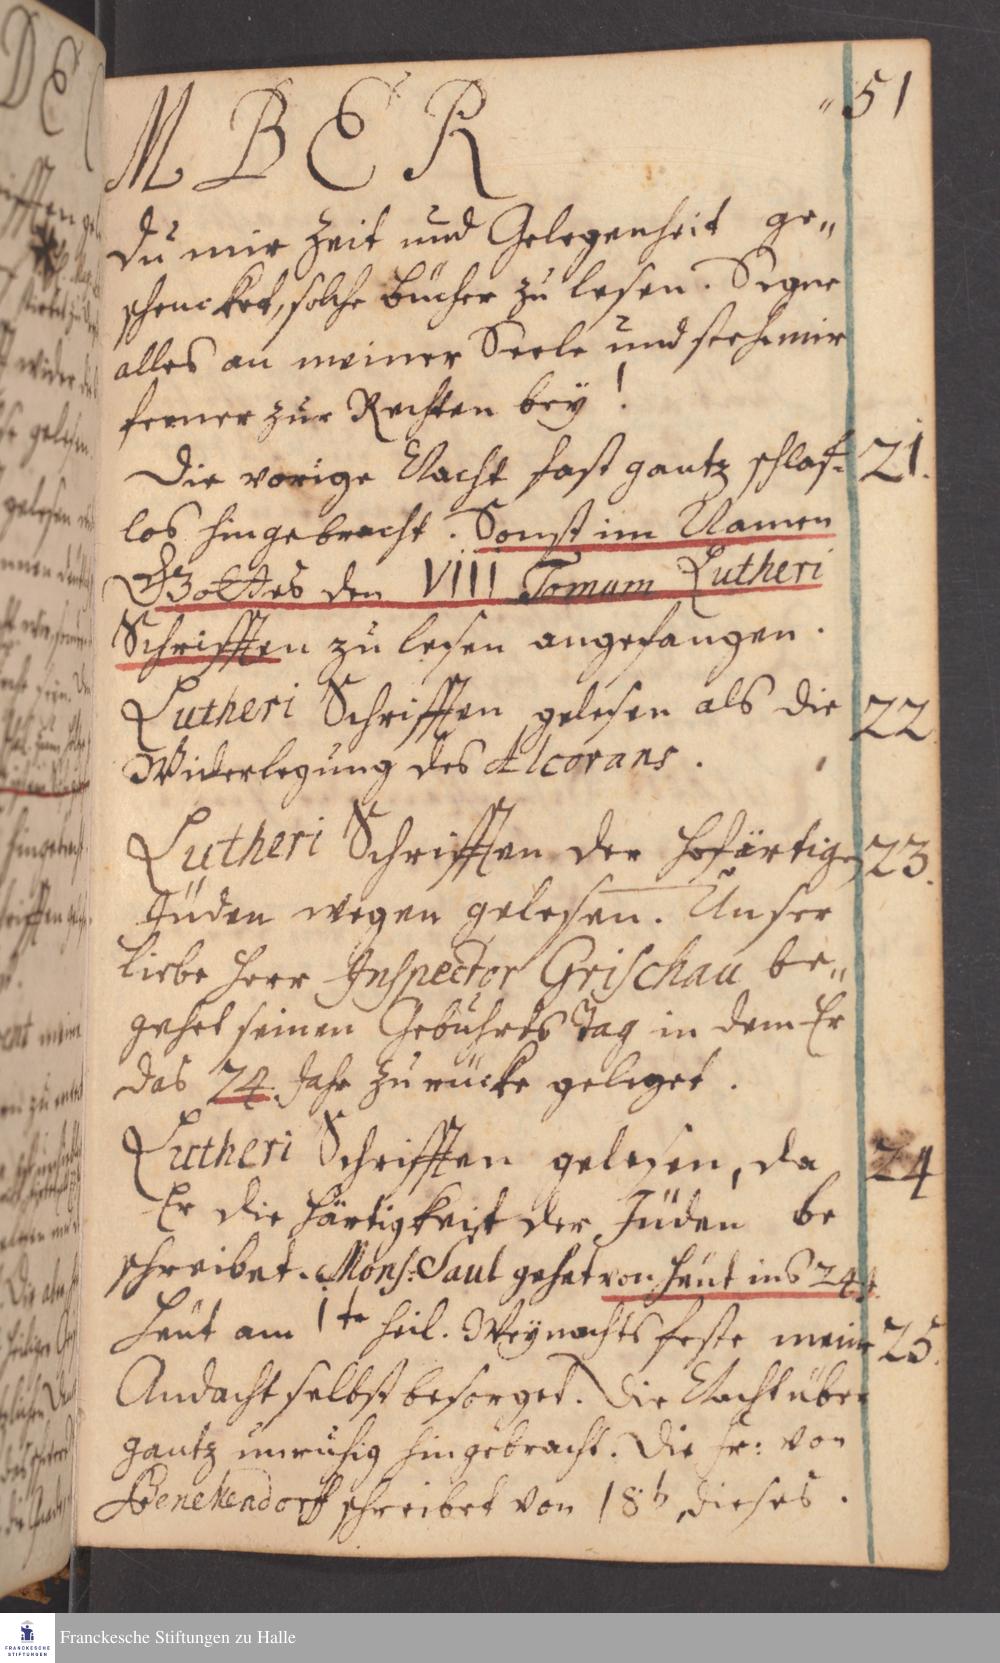 M B E R
51
du mir Zeit und Gelegenheit ge„
schencket, solche Bücher zu lesen. Segne
alles an meiner Seele und steh mir
ferner zur Rechten bey!
Die vorige Nacht fast gantz schlaf- 21.
los hingebracht. Sonst im Namen
Gottes den VIII Tomum Lutheri
Schrifften zu lesen angefangen.
Lutheri Schrifften gelesen als die 22
Widerlegung des Alcorans.
Lutheri Schrifften der hofärtigen 23.
Jüden wegen gelesen. Unser
liebe Herr Inspector Grischau be„
gehet seinen Gebuhrts Tag in dem Er
das 24. Jahr zurücke geleget.
Lutheri Schrifften gelesen, da 24
Er die Härtigkeit der Jüden be
schreibet. Mons: Saul gehet von heut ins 24
Heut am 1te heil. Weynachts feste meine 25.
Andacht selbst besorget. Die Nacht über
gantz unruhig hingebracht. Die Fr: von
Benekendorff schreibet von 18t dieses.
FRANCKESCHE
STIFTUNGEN
Franckesche Stiftungen zu Halle